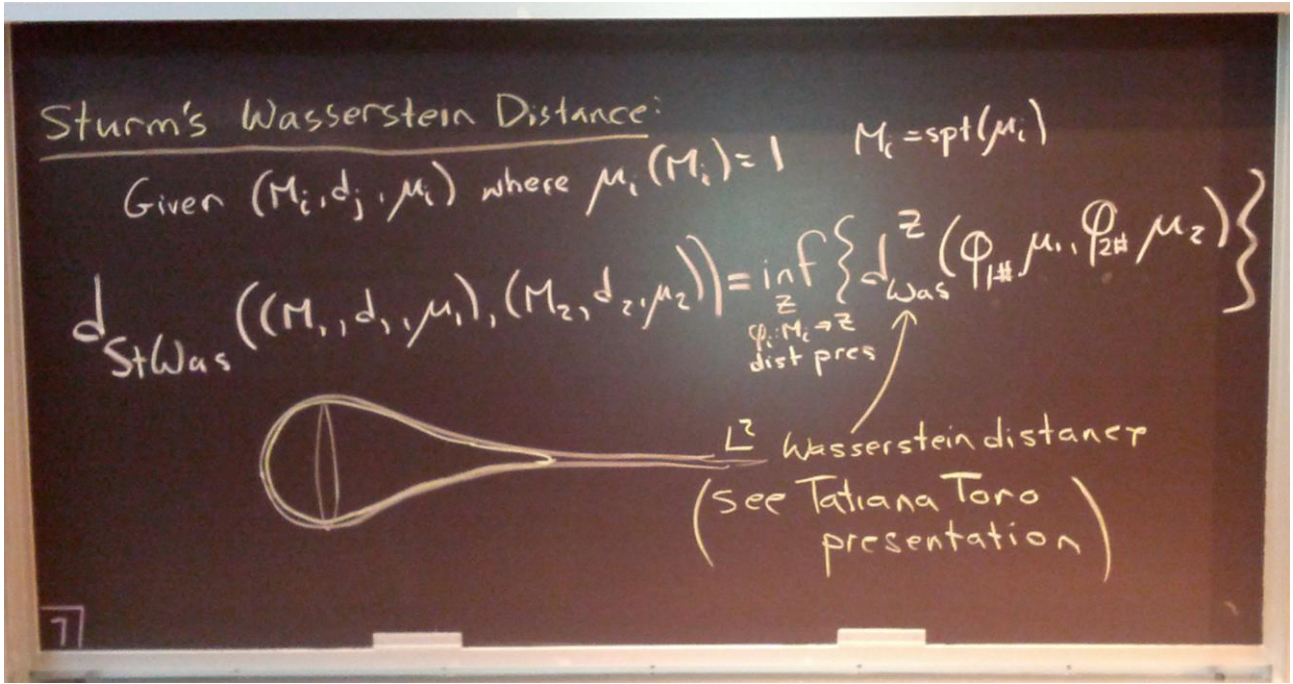 Sturm's Wasserstein Distance:
Given (M_i, d_j, μ_i) where μ_i(M_i)=1 M_i = spt(μ_i)
d_StWas((M_1, d_1, μ_1), (M_2, d_2, μ_2)) = inf { d_Was^Z (φ_1# μ_1, φ_2# μ_2) }
Z
φ_i: M_i → Z
dist pres
L² Wasserstein distance
(see Tatiana Toro
presentation)
7